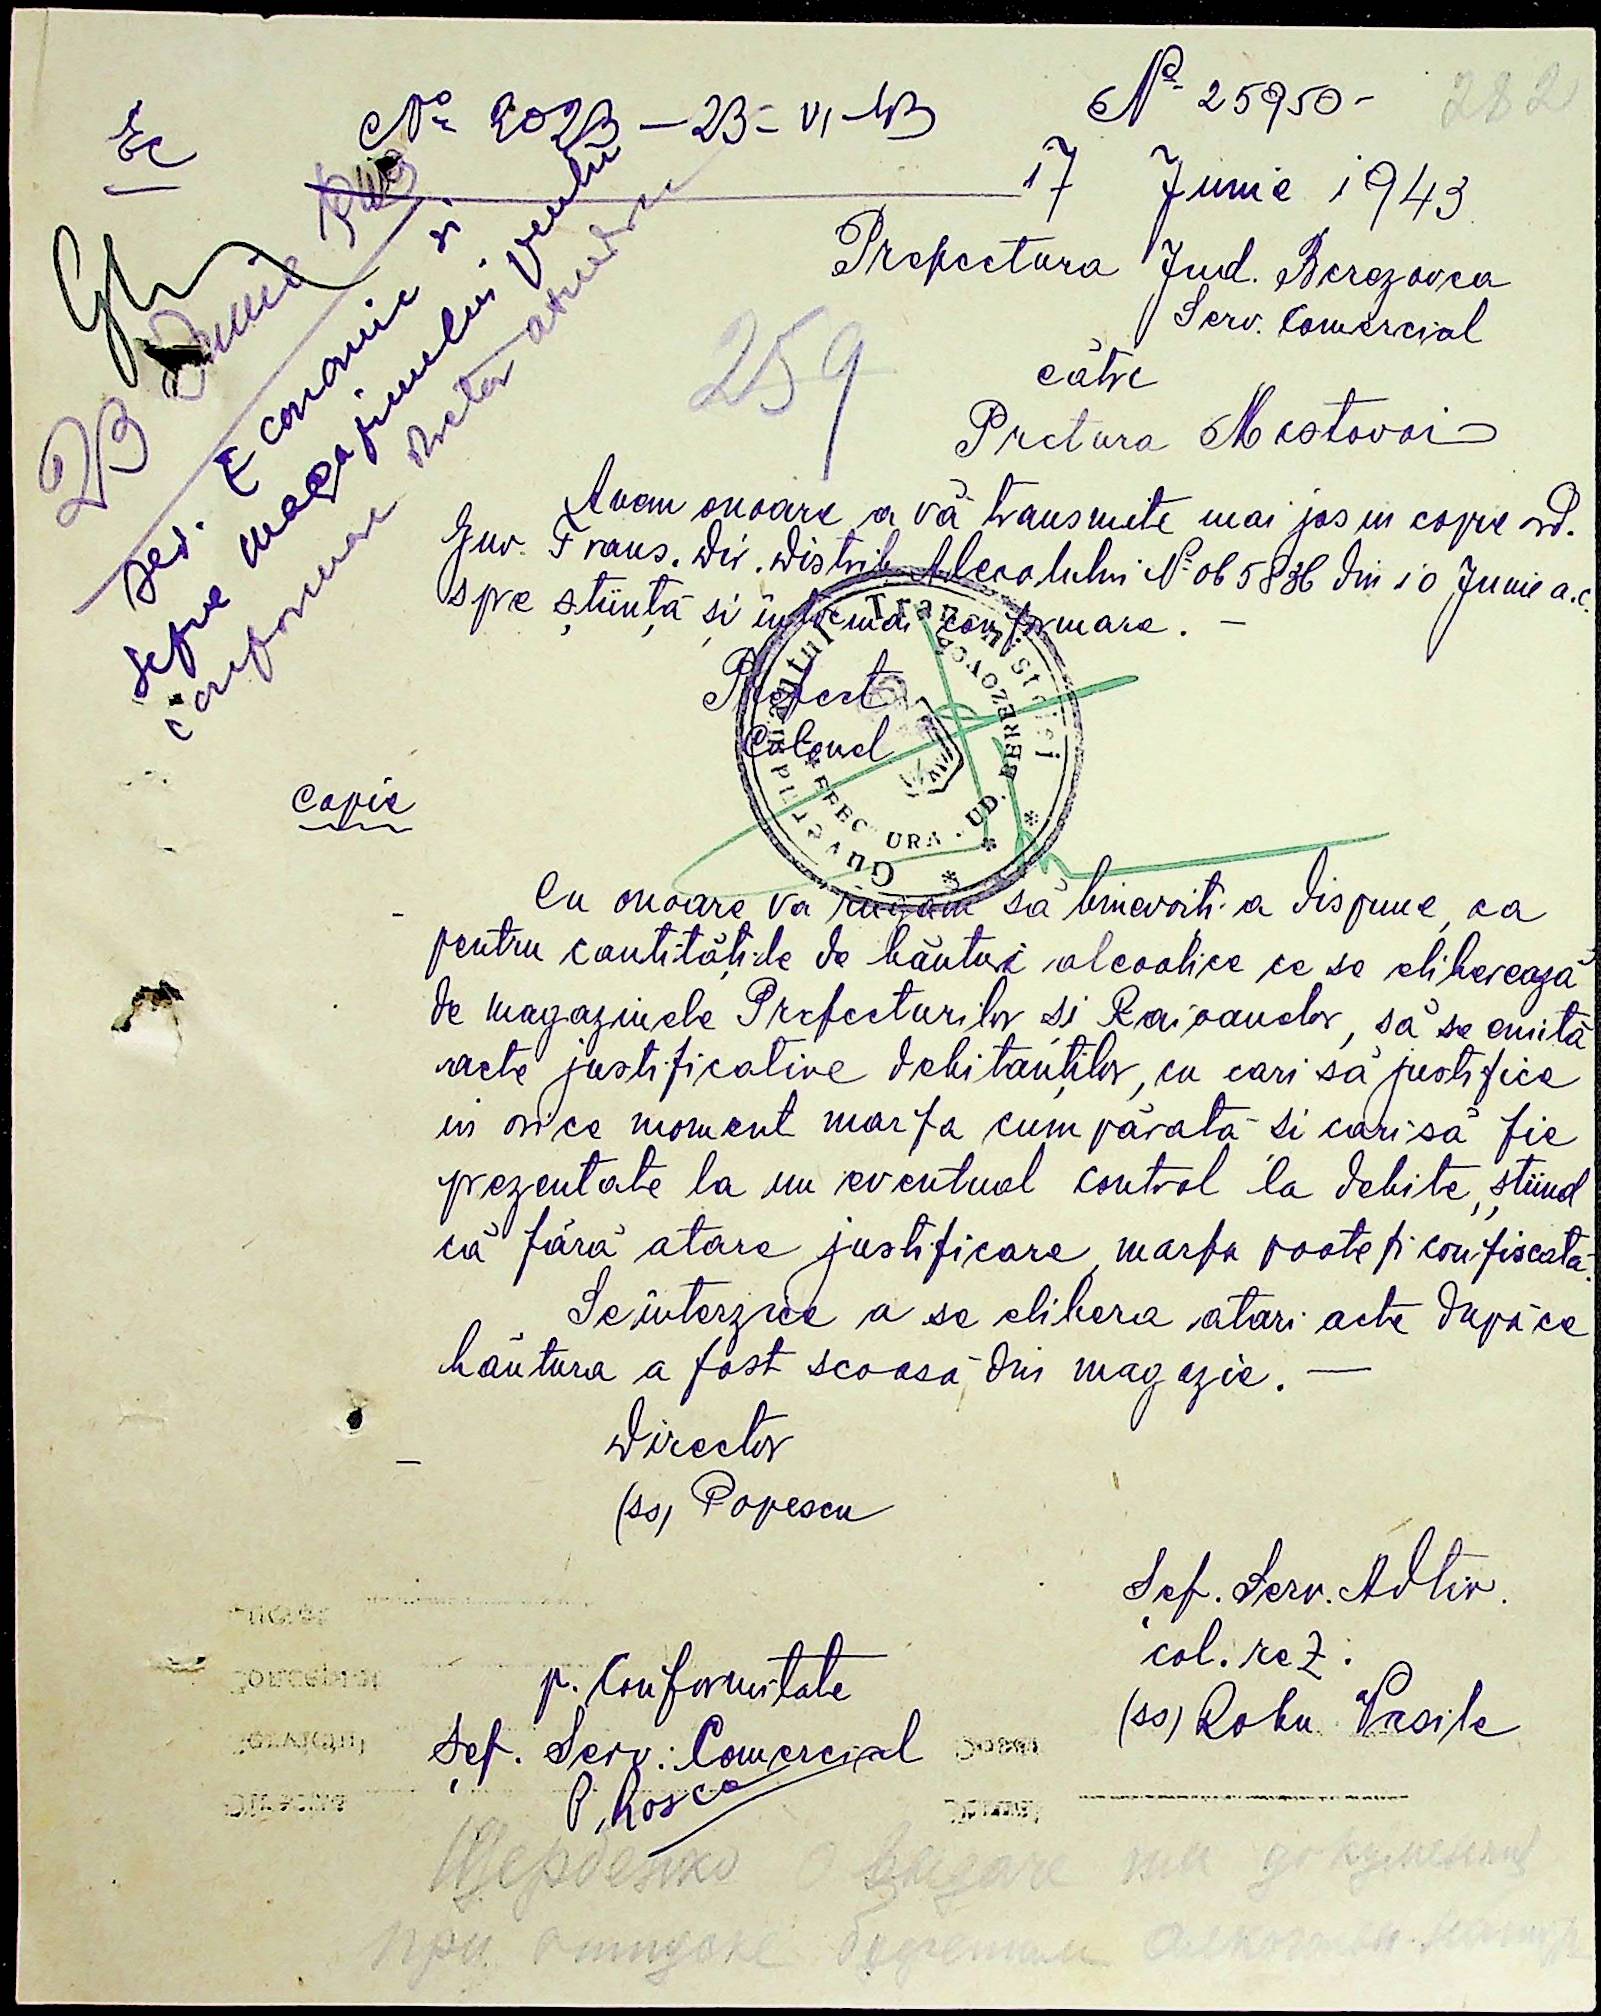 Ec
No 2023 – 23 – VI – 43
No 25950 –
282
17 Junie 1943
Prefectura Jud. Berezovca
Serv. Comercial
către
Pretura Mostovoi
259
23 Junie
Ser. Economic și
magazinului
conformare
Avem onoare a vă transmite mai jos in copie ord.
Guv. Trans. Dir. Distrib. Alcoolului No 065836 din 10 Junie a.c.
spre știință și întocmai conformare. –
Prefect
Colonel
Guvernământul Transnistriei
PREFECTURA JUD. BEREZOVCA
Copie
Cu onoare vă rugăm să binevoiți a dispune, ca
pentru cantitățile de băuturi alcoolice ce se eliberează
de magazinele Prefecturilor și Raioanelor, să se emită
acte justificative debitanților, cu cari să justifice
in orice moment marfa cumpărată și cari să fie
prezentate la un eventual control la debite, știind
că fără atare justificare, marfa poate fi confiscată.
Se interzice a se elibera atari acte după ce
băutura a fost scoasă din magazie. —
Director
(ss) Popescu
Șef. Serv. Adtiv.
col. rez.
(ss) Robu Vasile
p. Conformitate
Șef. Serv. Comercial
P. Roșca
о выдаче документов
при отпуске